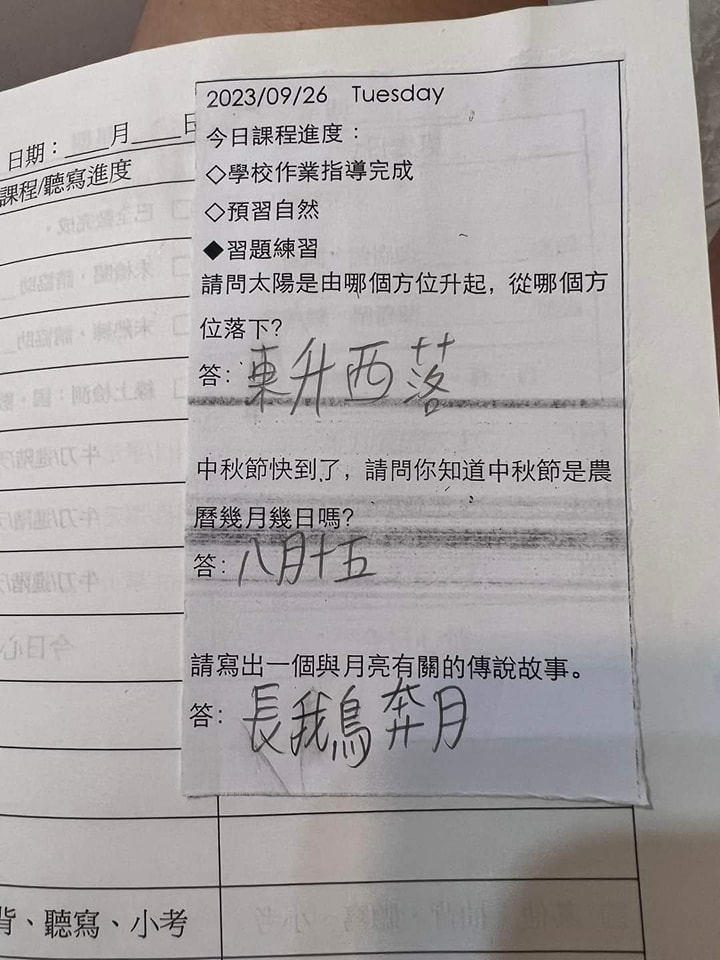 日期：___月___日
課程/聽寫進度
2023/09/26 Tuesday
今日課程進度：
◇學校作業指導完成
◇預習自然
◆習題練習
請問太陽是由哪個方位升起，從哪個方
位落下?
答：東升西落
中秋節快到了，請問你知道中秋節是農
曆幾月幾日嗎?
答：八月十五
請寫出一個與月亮有關的傳說故事。
答：長鵝奔月
背、聽寫、小考